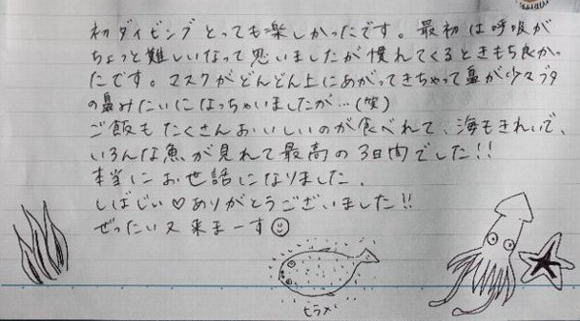 初ダイビングとっても楽しかったです。最初は呼吸が
ちょっと難しいなって思いましたが慣れてくるときもち良かっ
たです。マスクがどんどん上にあがってきちゃって鼻が少々ブタ
の鼻みたいになっちゃいましたが…(笑)
ご飯もたくさんおいしいのが食べれて、海もきれいで、
いろんな魚が見れて最高の3日間でした!!
本当にお世話になりました。
しばじい♡ありがとうございました!!
ぜったい又来まーす☺
ヒラメ